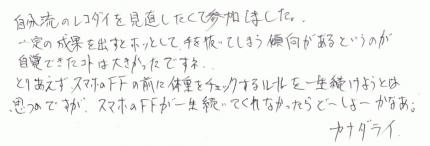 自分流のレコダイを見直したくて参加しました。
一定の成果を出すとホッとして、手を抜いてしまう傾向があるというのが
自覚できたコトは大きかったですネ..
とりあえず、スマホのFFの前に体重をチェックするルールを一生続けようとは
思うのですが、スマホのFFが一生続いてくれなかったらど〜しよ〜かなぁ。
カナダライ.